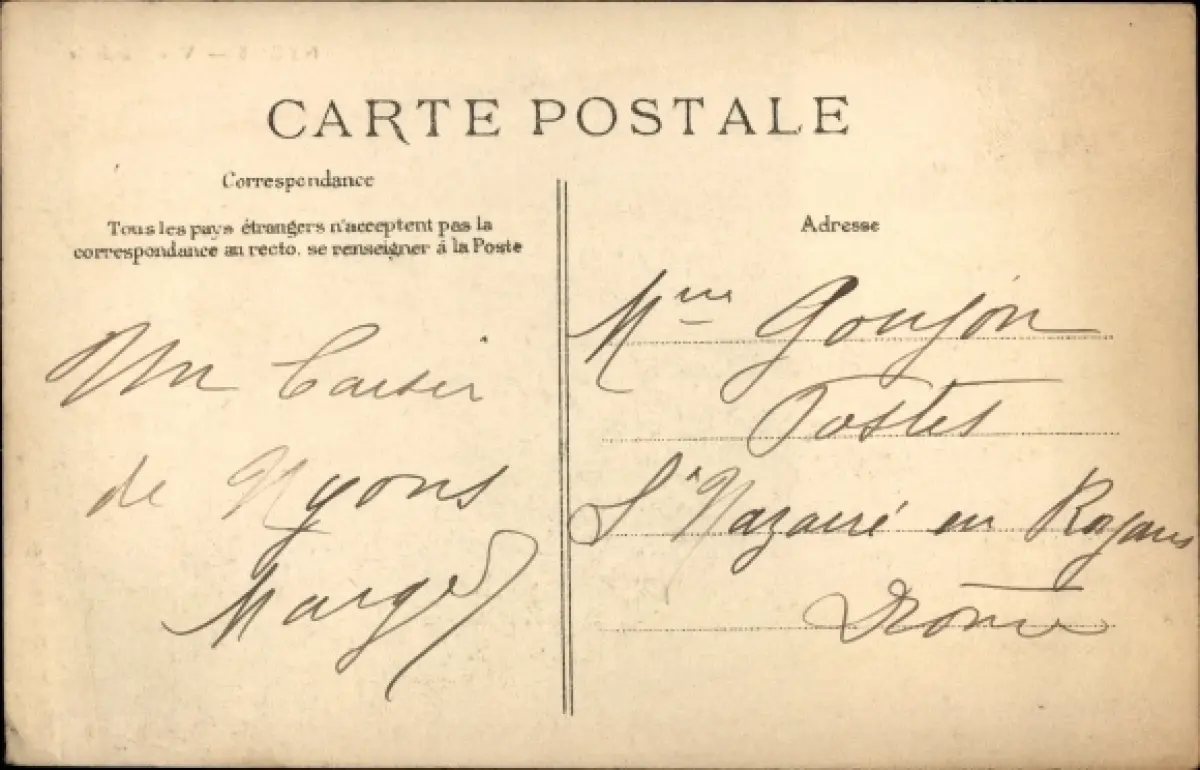 CARTE POSTALE
Correspondance
Tous les pays étrangers n'acceptent pas la
correspondance au recto, se renseigner à la Poste
Un baiser
de Nyons
Adresse
Mme Goujon
Postes
St Nazaire en Royans
Drôme